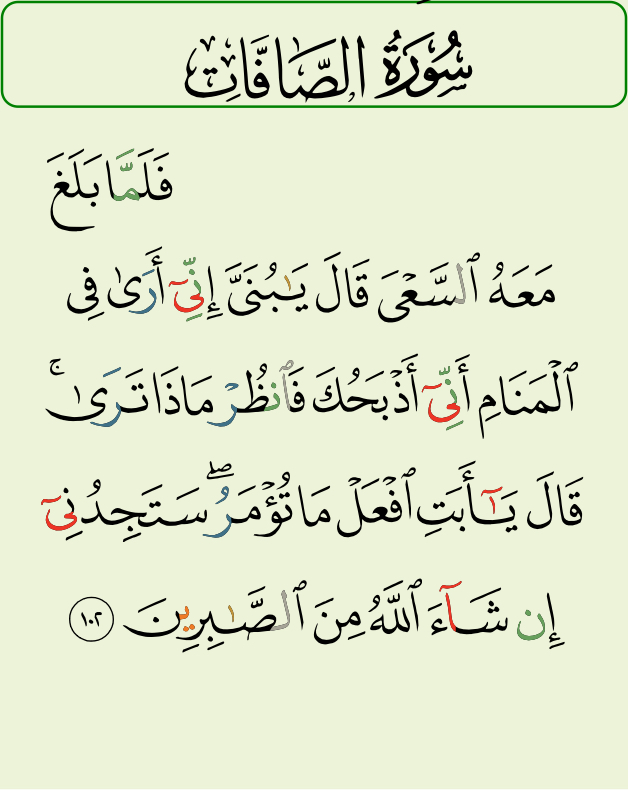 سُورَةُ الصَّافَّاتِ
فَلَمَّا بَلَغَ
مَعَهُ ٱلسَّعْىَ قَالَ يَـٰبُنَىَّ إِنِّىٓ أَرَىٰ فِى
ٱلْمَنَامِ أَنِّىٓ أَذْبَحُكَ فَٱنظُرْ مَاذَا تَرَىٰ ۚ
قَالَ يَـٰٓأَبَتِ ٱفْعَلْ مَا تُؤْمَرُ ۖ سَتَجِدُنِىٓ
إِن شَآءَ ٱللَّهُ مِنَ ٱلصَّـٰبِرِينَ ١٠٢